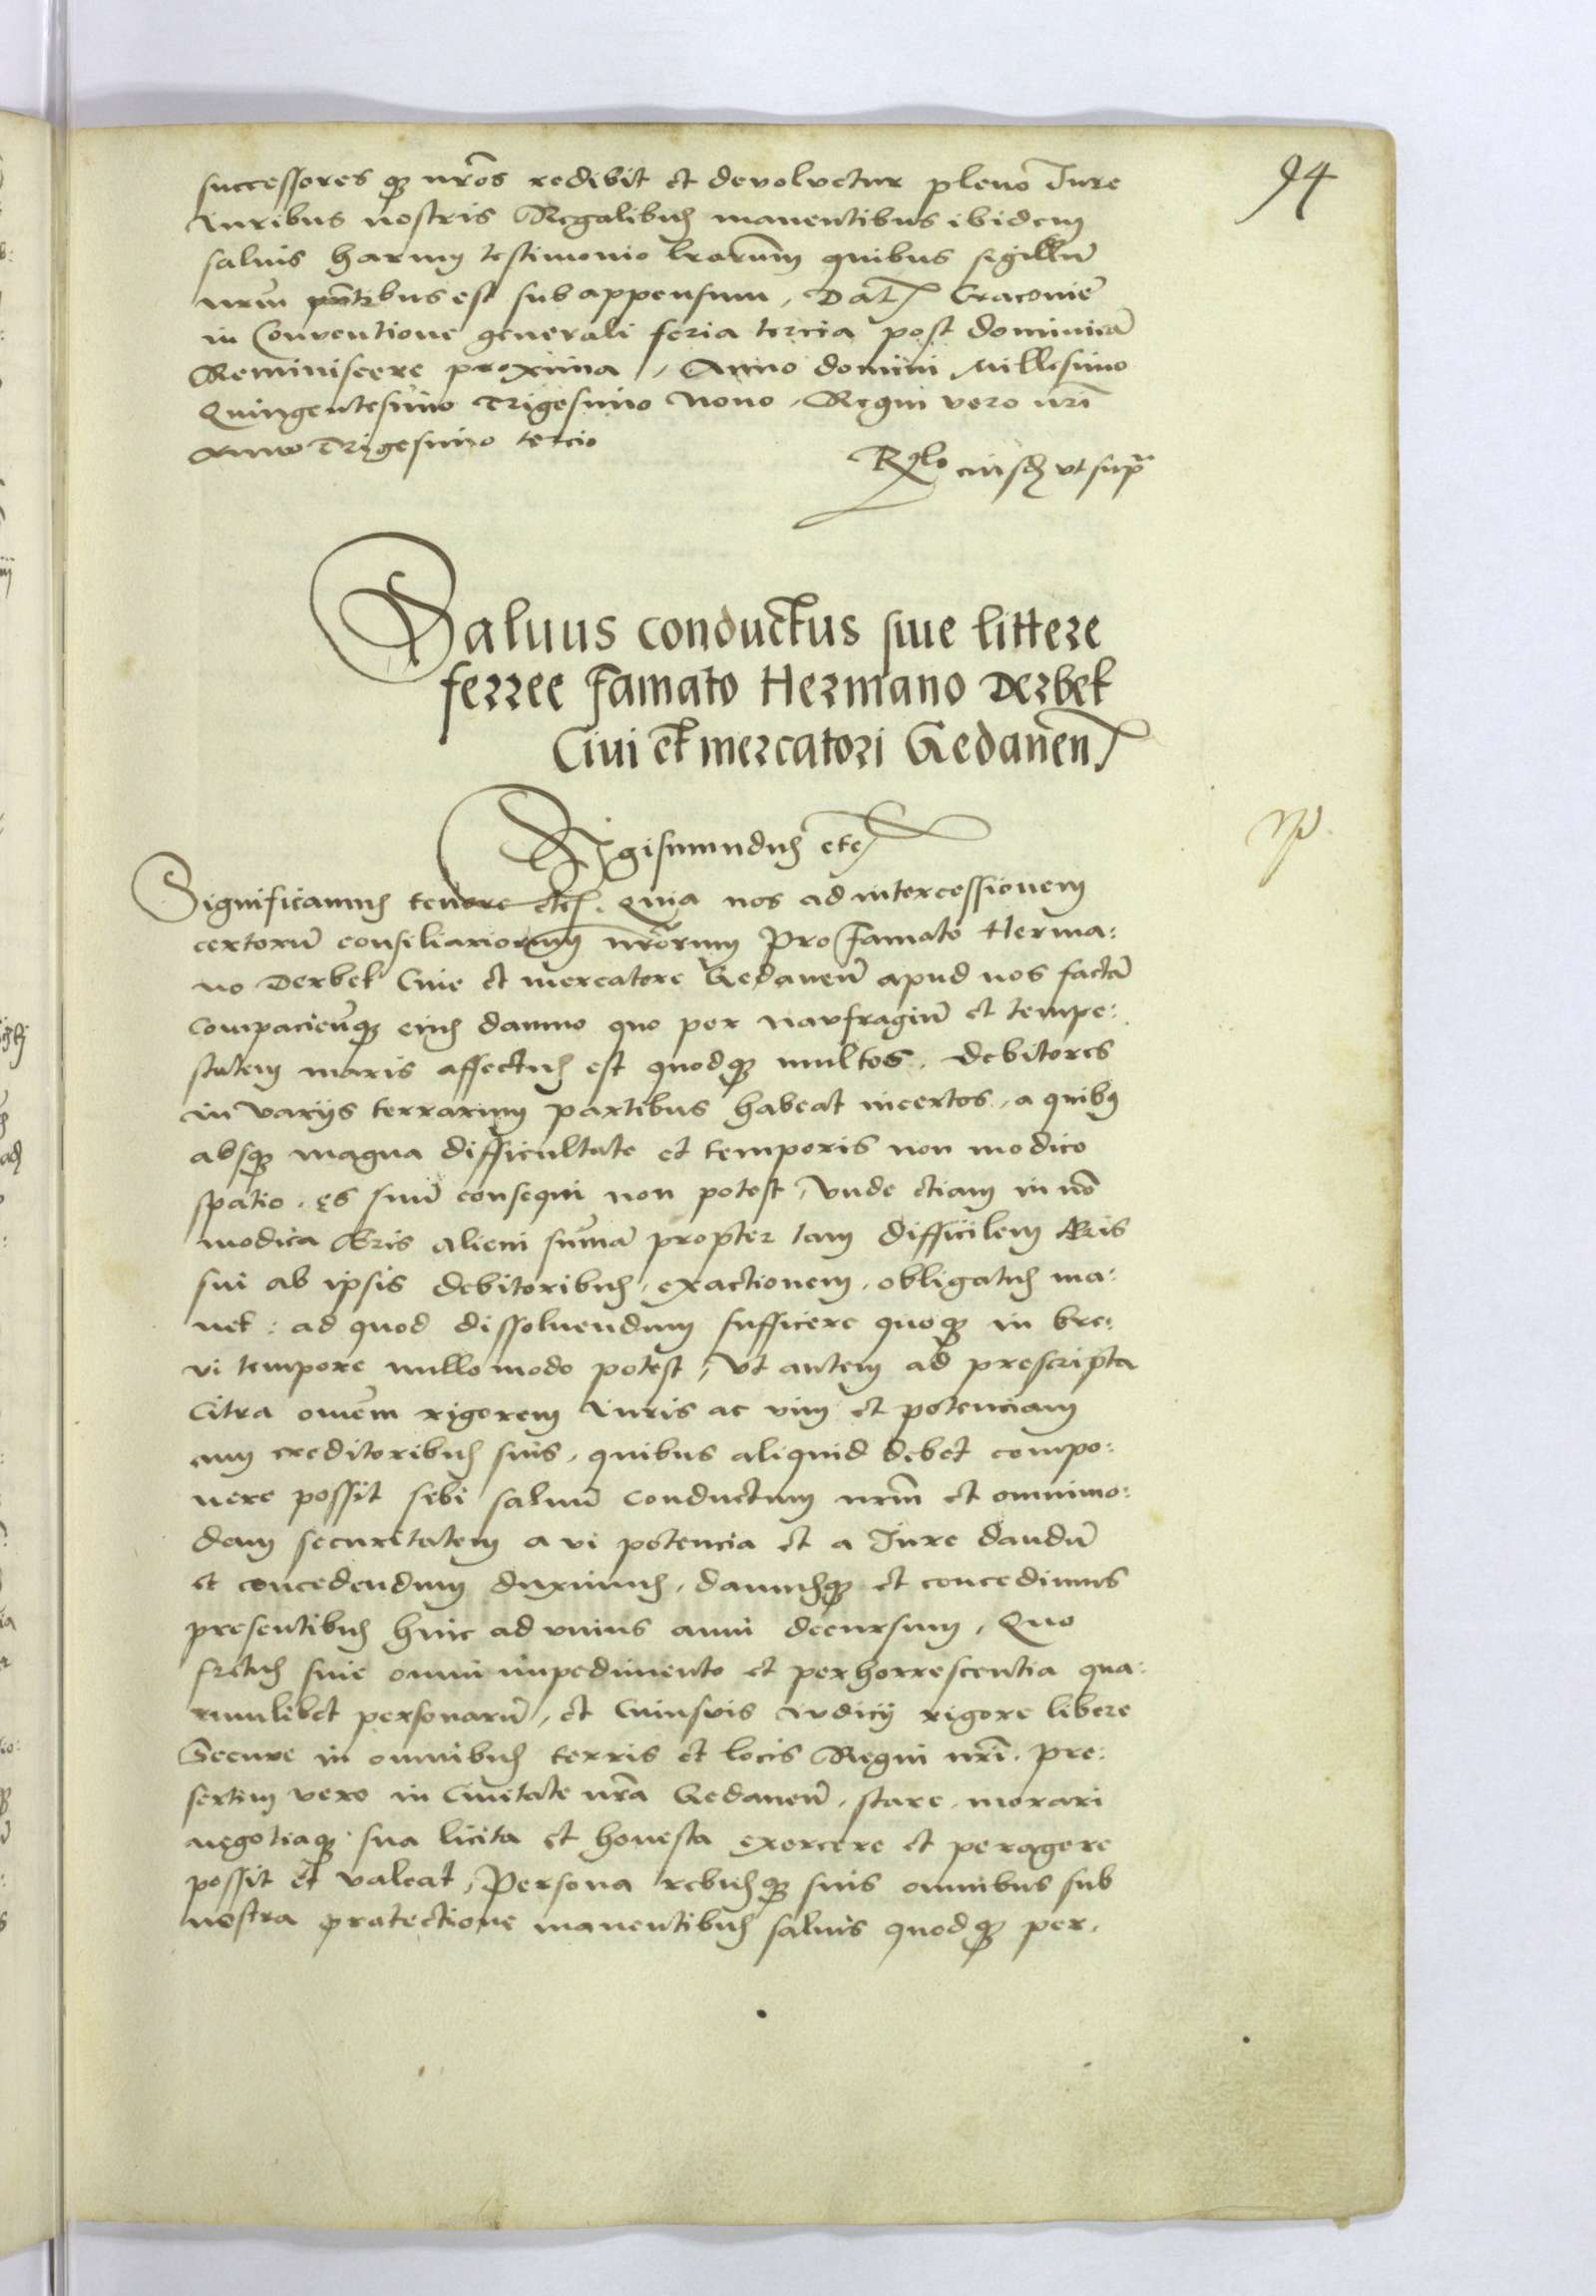 94
successores q₃ nr̄os redibit et devolvetur pleno Jure
Iuribus nostris Regalibus manentibus ibidem
saluis harum testimonio lrarum̄ quibus sigillū
nrūm pn̄tibus est subappensum, Dat Cracouie
in Conventione generali feria tercia post dominicā
Reminiscere proxima, Anno domini Millesimo
Quingentesimo Trigesimo Nono, Regni vero nr̄i
Anno Trigesimo tercio
Rlo eiusdē vt supra
Saluus conductus siue littere
ferree Famato Hermano Derbek
Ciui et mercatori Gedanen̄
Sigismundus etc
Significamus tenore etc. quia nos ad intercessionem
certorū consiliariorum nr̄orum Pro Famato Herma:
no Derbek Ciue et mercatore Gedanen̄ apud nos factā
Compacien̄q₃ eius damno quo per naufragiū et tempe:
statem maris affectus est quodq₃ multos debitores
in varijs terrarum partibus habeat incertos, a quibus
absq₃ magna difficultate et temporis non modico
spatio ęs suū consequi non potest, Vnde etiam in nō
modica Aeris alieni sum̄a propter tam difficilem Aeris
sui ab ipsis debitoribus, exactionem, obligatus ma:
net: ad quod dissoluendum sufficere quoq₃ in bre:
vi tempore nullo modo potest, Vt autem ad prescripta
Citra omēm rigorem Iuris ac vim et potenciam
cum creditoribus suis, quibus aliquid debet compo:
nere possit sibi saluū conductum nrm̄ et omnimo:
dam securitatem a vi potencia et a Jure dandū
et concedendum duximus, damusq₃ et concedimus
presentibus hinc ad vnius anni decursum, Quo
fretus sine omni impedimento et perhorrescentia qua:
rumlibet personarū, et Cuiusvis iudicij rigore libere
Secure in omnibus terris et locis Regni nr̄i pre:
sertim vero in Ciuitate nr̄a Gedanen̄, stare, morari
negotiaq₃ sua licita et honesta exercere et peragere
possit et valeat, Persona rebusq₃ suis omnibus sub
nostra protectione manentibus saluis quodq₃ per